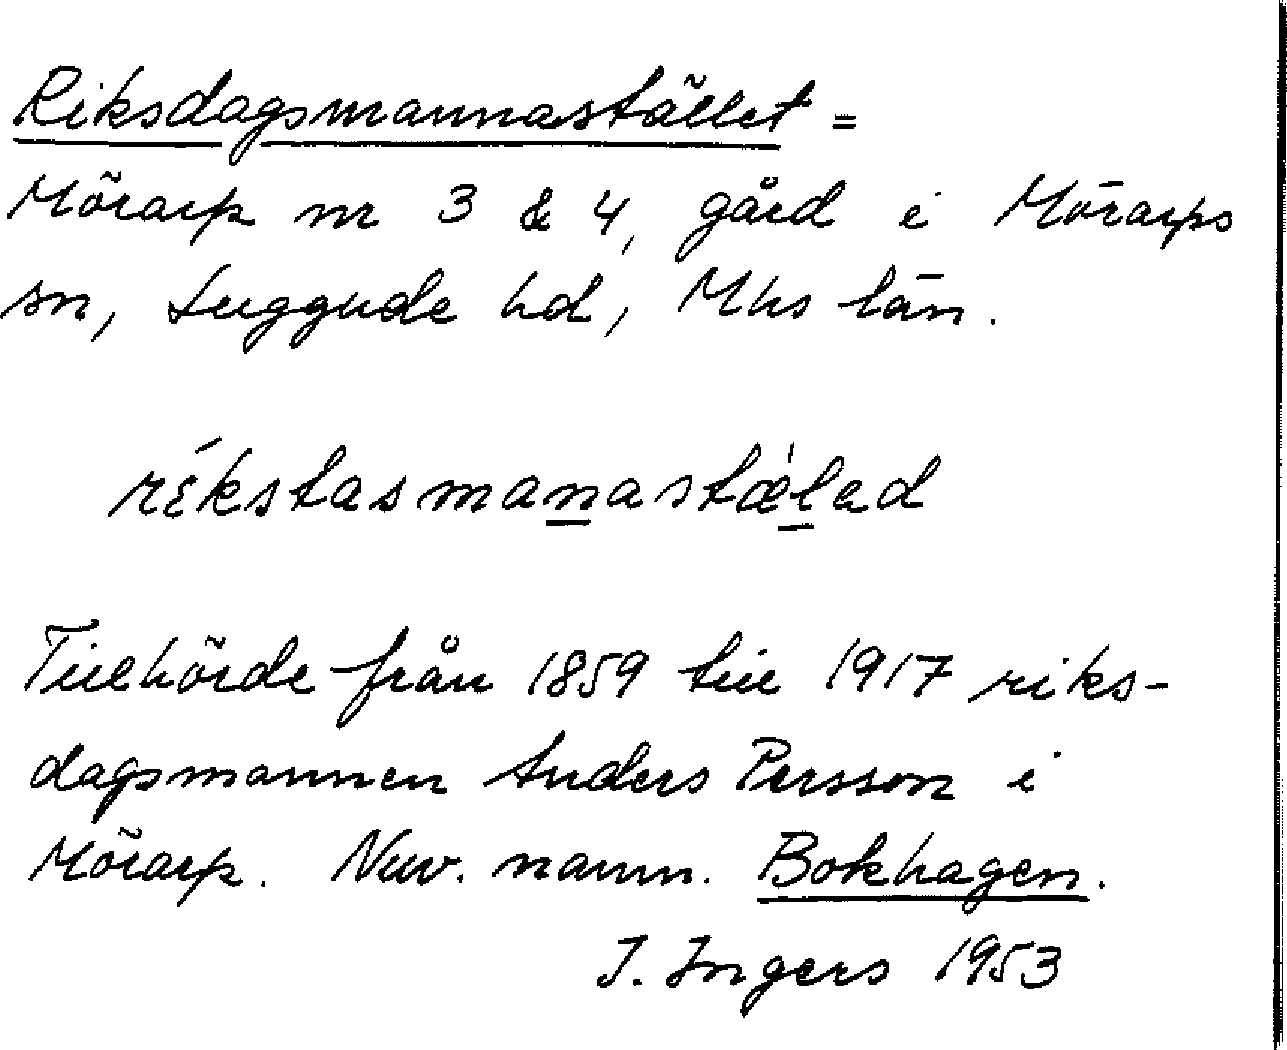 Riksdagsmannastället =
Mörarp nr 3 & 4, gård i Mörarps
sn, Luggude hd, Mhs län.
rékstasmanastǽlad
Tillhörde från 1859 till 1917 riks-
dagsmannen Anders Persson i
Mörarp. Nuv. namn. Bokhagen.
I. Ingers 1953